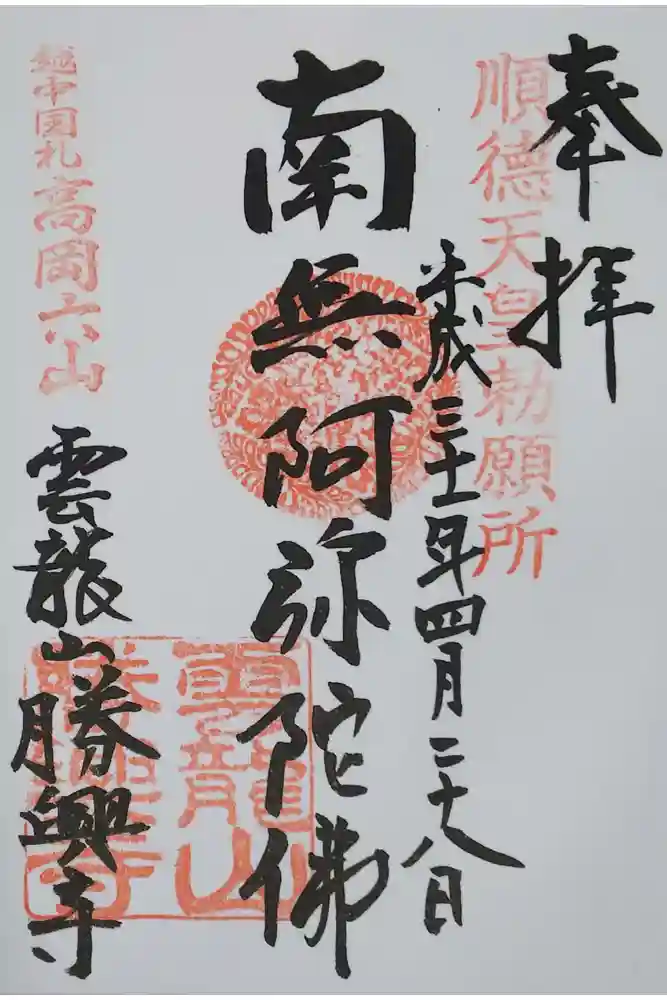 奉拝
順徳天皇勅願所
平成三十一年四月二十八日
南無阿弥陀佛
越中国礼高岡六山
雲龍山勝興寺
雲龍山
勝興寺